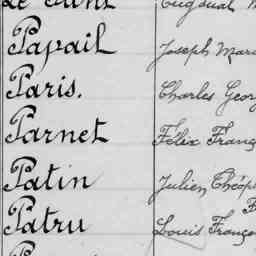 Papail Joseph Mari
Paris. Charles Georg
Parnet Félix Franç
Patin Julien Théop
Patru Louis Franço